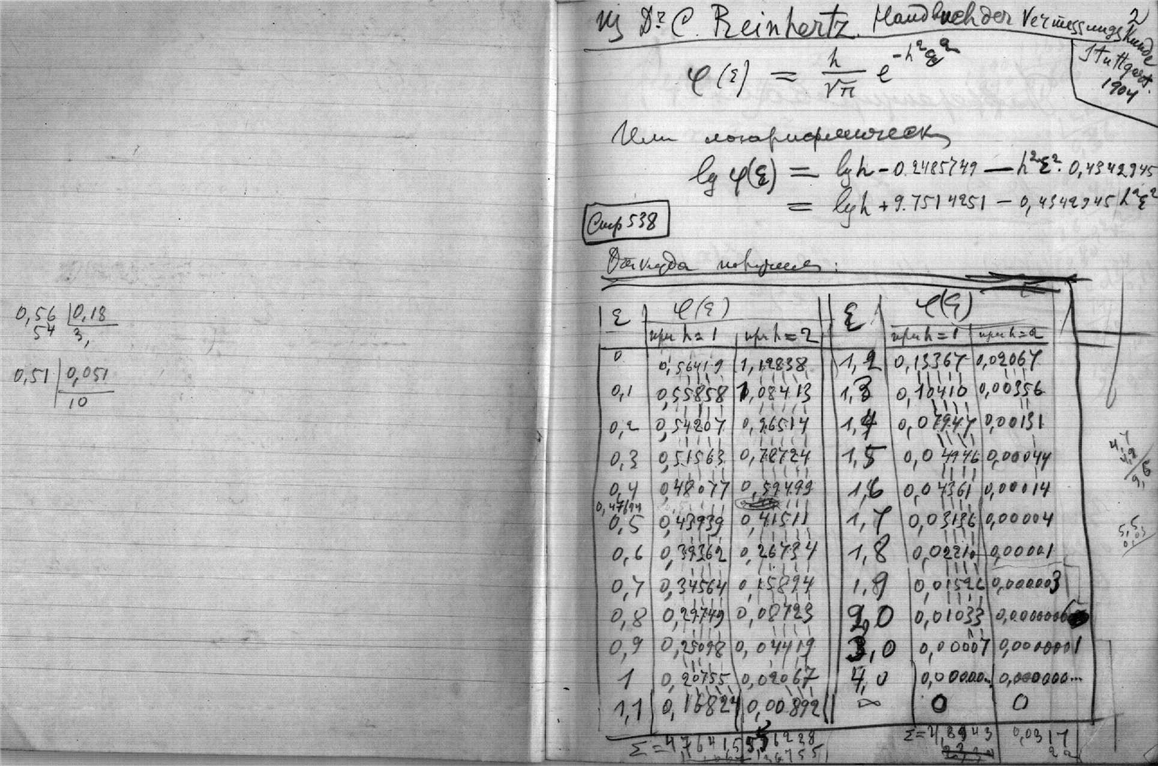 0,56 | 0,18
54 3,
0,51 | 0,051
10
2
Из Dr. C. Reinhertz. Handbuch der Vermessungskunde
Stuttgart.
1904
φ(ξ) = h/√π e^{-h²ξ²}
Или логарифмически
lg φ(ξ) = lg h - 0.2485749 — h²ξ². 0,4342945
= lg h + 9.7514251 - 0,4342945 h²ξ²
Стр 538
Откуда получили:
ξ φ(ξ) ξ φ(ξ)
при h=1 при h=2 при h=1 при h=2
0 0,56419 1,12838 1,2 0,13367 0,02067
0,1 0,55858 1,08413 1,3 0,10410 0,00356
0,2 0,54207 0,96514 1,4 0,07947 0,00131
0,3 0,51563 0,78724 1,5 0,04946 0,00044
0,4 0,48077 0,59499 1,6 0,04361 0,00014
0,47694
0,5 0,43939 0,41511 1,7 0,03136 0,00004
0,6 0,39362 0,26734 1,8 0,02210 0,00001
0,7 0,34564 0,15894 1,9 0,01526 0,000003
0,8 0,29749 0,08723 2,0 0,01033
0,9 0,25098 0,04419 3,0 0,00007 0,0000001
1 0,20755 0,02067 4,0 0,00000.. 0,000000...
1,1 0,16824 0,00892 ∞ 0 0